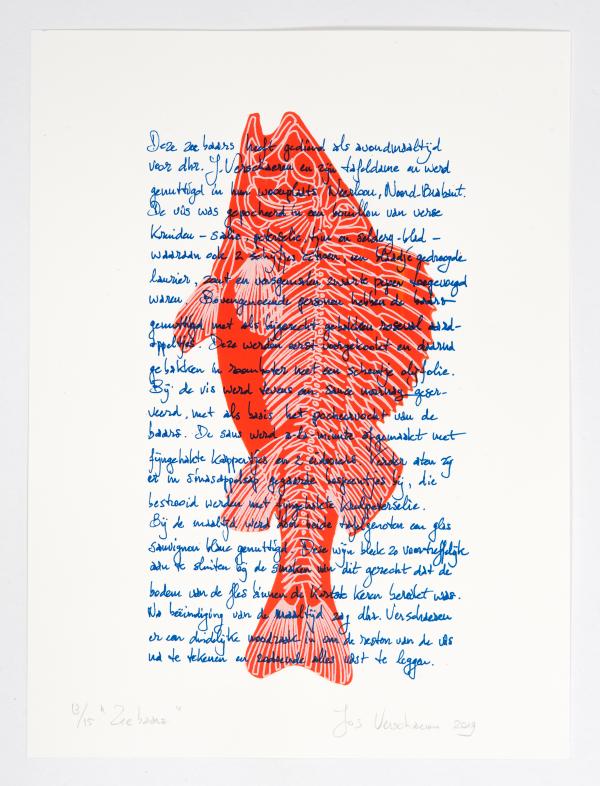 Deze zeebaars heeft gediend als avondmaaltijd
voor dhr. J. Verschaeren en zijn tafeldame en werd
genuttigd in hun woonplaats Neerloon, Noord-Brabant.
De vis was gepocheerd in een bouillon van verse
Kruiden - salie, peterselie, tijm en selderij-blad -
waaraan ook 2 schijfjes citroen, een blaadje gedroogde
laurier, zout en versgemalen zwarte peper toegevoegd
waren. Bovengenoemde personen hebben de baars
genuttigd met als bijgerecht gebakken roseval aard-
appeltjes. Deze werden eerst voorgekookt en daarna
gebakken in roomboter met een scheutje olijfolie.
Bij de vis werd tevens een sauce geser-
veerd, met als basis het pocheervocht van de
baars. De saus werd a-la minute afgemaakt met
fijngehakte Kappertjes en 2 eidooiers. Verder aten zij
er in sinaasappelsap gegaarde bij, die
bestrooid werden met fijngehakte Krulpeterselie.
Bij de maaltijd werd door beide tafelgenoten een glas
sauvignon blanc genuttigd. Deze wijn bleek zo voortreffelijk
aan te sluiten bij de smaken van dit gerecht dat de
bodem van de fles binnen de Kortste Keren bereikt was.
Na beëindiging van de maaltijd zag dhr. Verschaeren
er een duidelijke noodzaak in om de resten van de vis
na te tekenen en zodoende alles vast te leggen.
13/15 "Zeebaars" Jos Verschaeren 2019